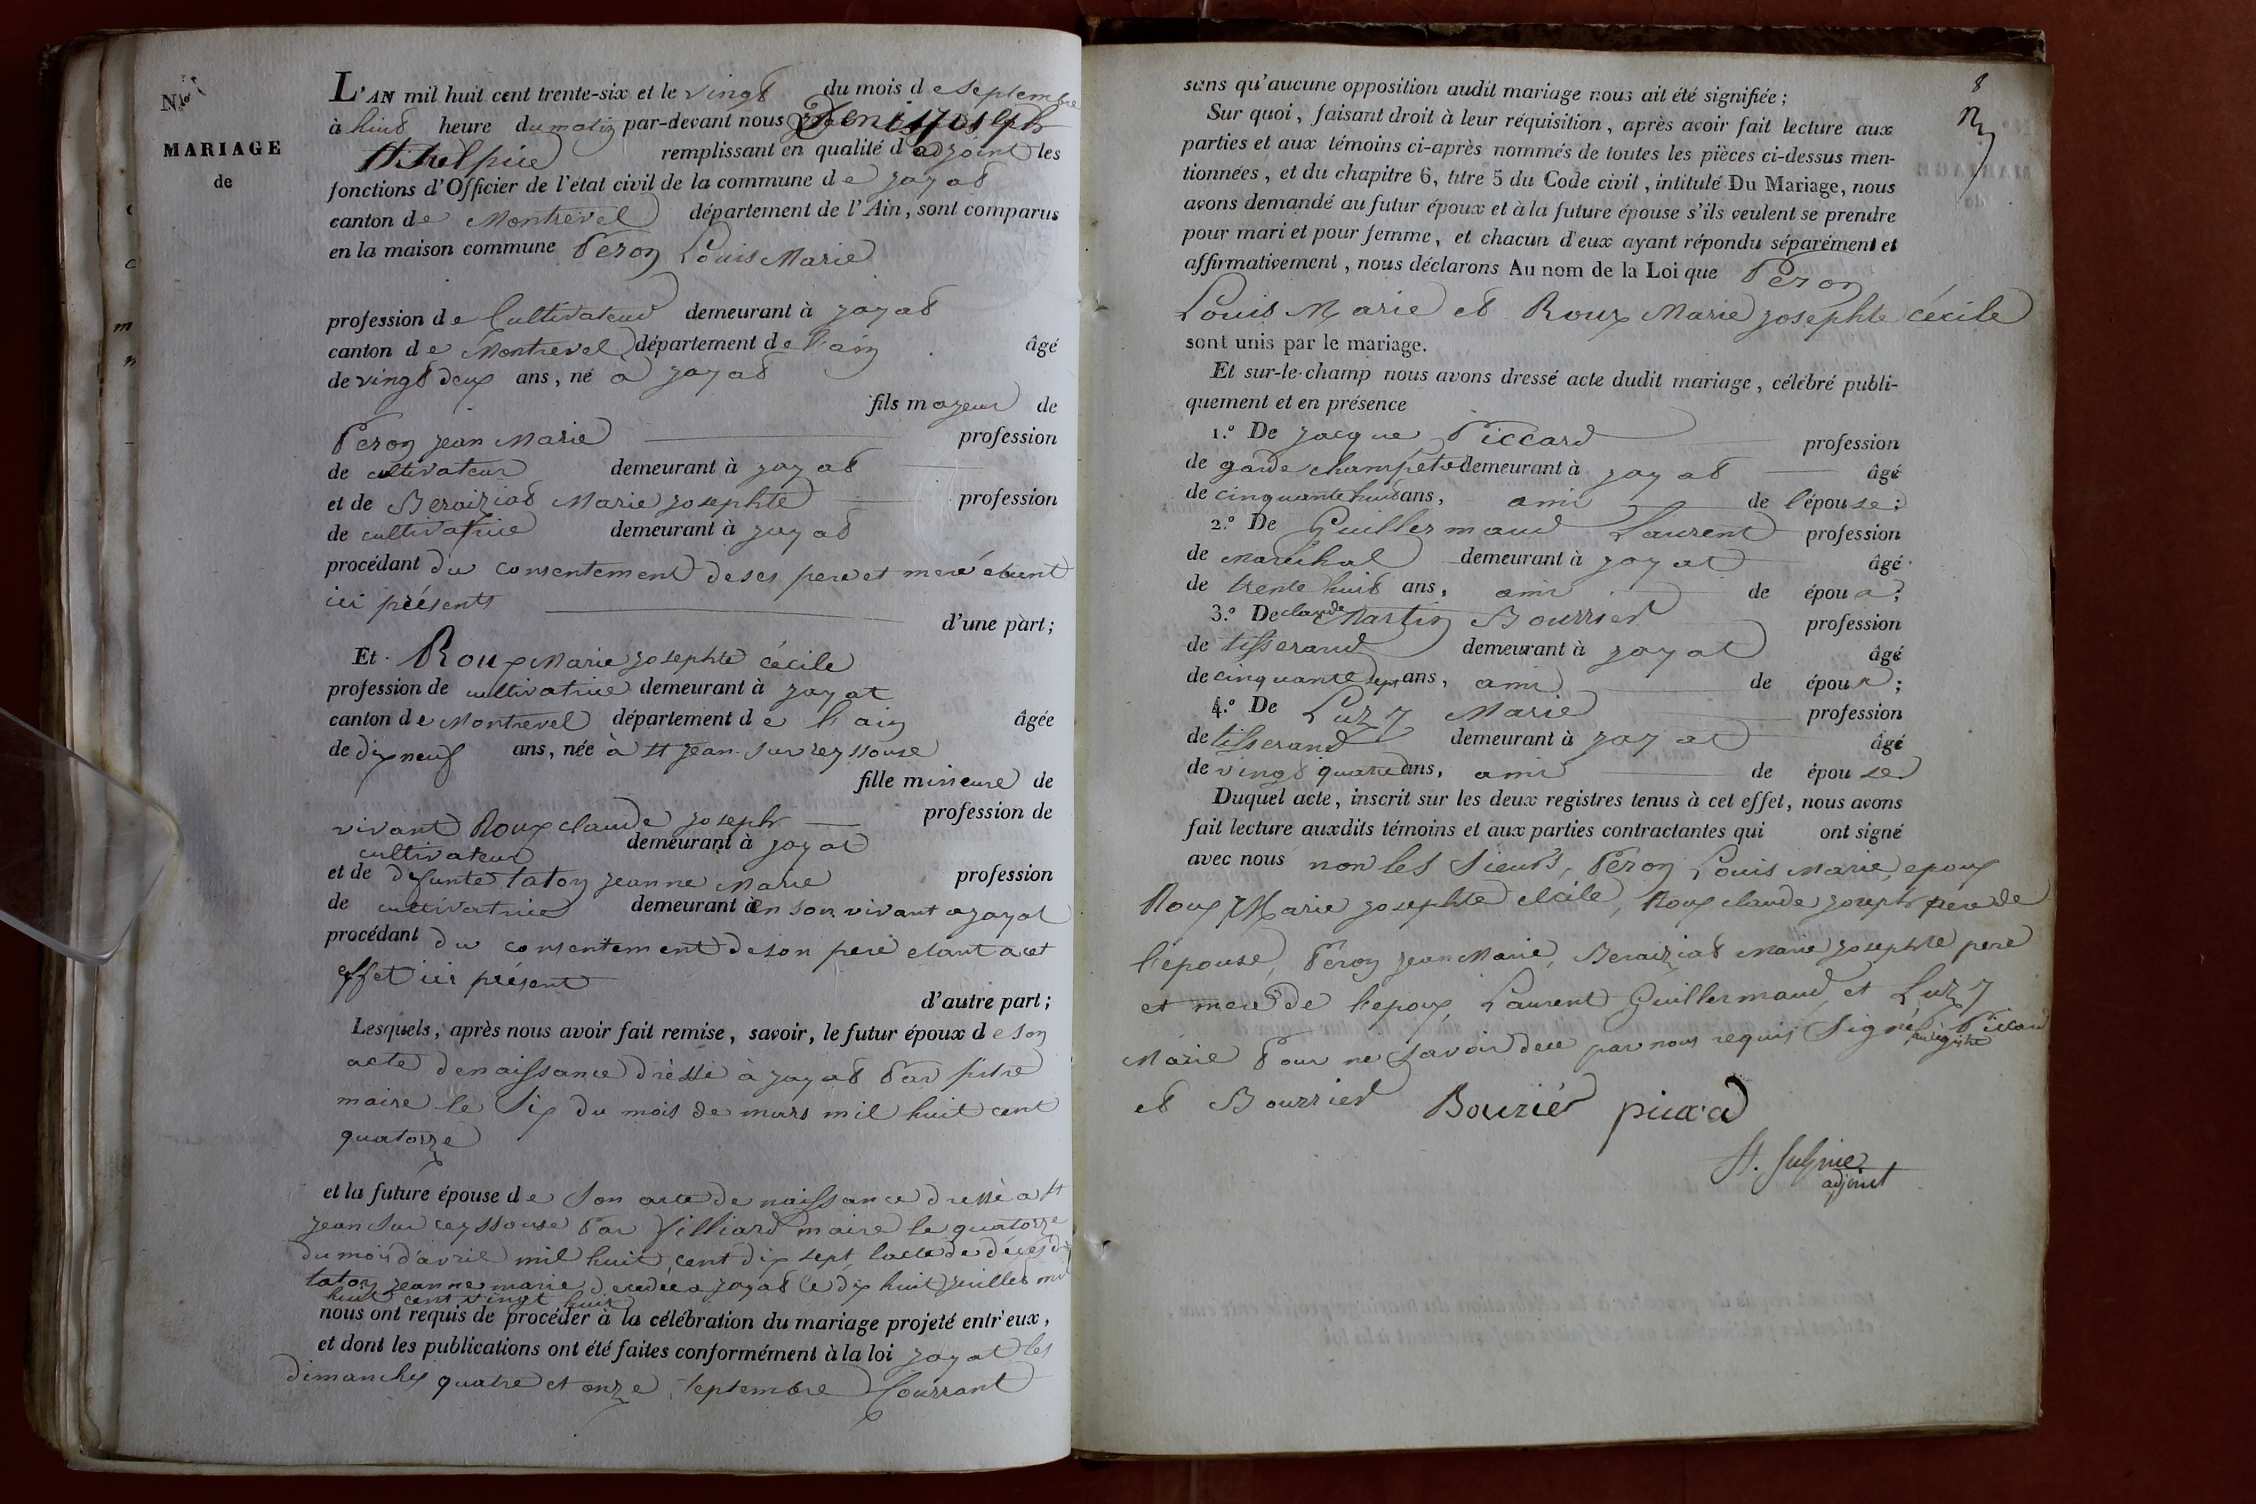 N.°
MARIAGE
de
L'AN mil huit cent trente-six et le vingt du mois de septembre
à huit heure du matin par-devant nous Denis Joseph
St Sulpice remplissant en qualité d'adjoint les
fonctions d'Officier de l'état civil de la commune de jayat
canton de Montrevel département de l'Ain, sont comparus
en la maison commune Peron Louis Marie
profession de Cultivateur demeurant à jayat
canton de Montrevel département de l'ain âgé
de vingt deux ans, né a jayat
fils majeur de
Peron jean Marie profession
de cultivateur demeurant à jayat
et de Beraiziat Marie josephte profession
de cultivatrice demeurant à jayat
procédant du consentement de ses pere et mere étant
ici présents
d'une part;
Et Roux Marie josephte cécile
profession de cultivatrice demeurant à jayat
canton de Montrevel département de l'ain âgée
de dix neuf ans, née à St jean sur reyssouse
fille mineure de
vivant Roux claude joseph profession de
cultivateur demeurant à jayat
et de défunte taton jeanne Marie profession
de cultivatrice demeurant à en son vivant a jayat
procédant du consentement de son pere etant a cet
effet ici présent
d'autre part;
Lesquels, après nous avoir fait remise, savoir, le futur époux de son
acte de naissance dréssé à jayat Par pitre
maire le Six du mois de mars mil huit cent
quatorze
et la future épouse de Son acte de naissance dressé a St
jean sur reyssouse Par Villiard maire le quatorze
du mois d'avril mil huit cent dix sept, l'acte de décés de
taton jeanne marie décédée a jayat le dix huit juillet mil
huit cent vingt huit
nous ont requis de procéder à la célébration du mariage projeté entr'eux,
et dont les publications ont été faites conformément à la loi jayat les
dimanches quatre et onze septembre Courrant
8
sans qu'aucune opposition audit mariage nous ait été signifiée;
Sur quoi, faisant droit à leur réquisition, après avoir fait lecture aux
parties et aux témoins ci-après nommés de toutes les pièces ci-dessus men-
tionnées, et du chapitre 6, titre 5 du Code civil, intitulé Du Mariage, nous
avons demandé au futur époux et à la future épouse s'ils veulent se prendre
pour mari et pour femme, et chacun d'eux ayant répondu séparément et
affirmativement, nous déclarons Au nom de la Loi que Peron
Louis Marie et Roux Marie josephte cécile
sont unis par le mariage.
Et sur-le-champ nous avons dressé acte dudit mariage, célébré publi-
quement et en présence
1.° De jacque Piccard profession
de garde champetre demeurant à jayat âgé
de cinquante huit ans, ami de l'épouse;
2.° De Guillermaud Laurent profession
de Maréchal demeurant à jayat âgé
de trente huit ans, ami de épou x;
3.° De claude Martin Bourrier profession
de tisserand demeurant à jayat âgé
de cinquante sept ans, ami de époux;
4.° De Luzy Marie profession
de tisserand demeurant à jayat âgé
de vingt quatre ans, ami de épouse
Duquel acte, inscrit sur les deux registres tenus à cet effet, nous avons
fait lecture auxdits témoins et aux parties contractantes qui ont signé
avec nous non les Sieurs, Peron Louis Marie, epoux
Roux Marie josephte cécile, Roux claude joseph pere de
l'epouse, Peron jean Marie, Beraiziat Marie josephte pere
et mere de l'epoux, Laurent Guillermaud, et Luzy
Marie Pour ne savoir de ce par nous requis Signé Piccard
et Bourrier Bouriér picard
St. Sulpice
adjoint